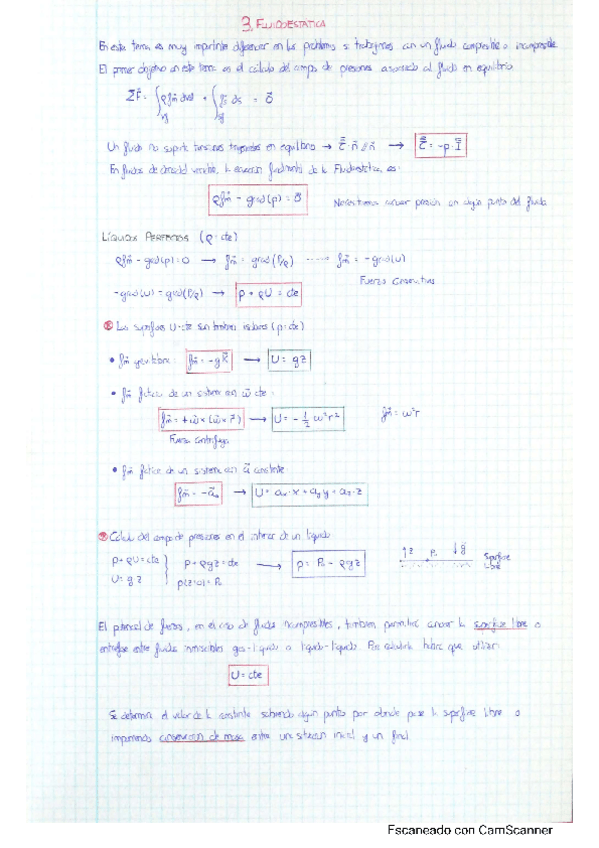 3. FLUIDOESTÁTICA
En este tema es muy importante diferenciar en los problemas si trabajamos con un fluido compresible o incompresible
El primer objetivo en este tema es el cálculo del campo de presiones asociado al fluido en equilibrio
Un fluido no soporta tensiones tangenciales en equilibrio → → = -p·I
En fluidos de densidad variable, la ecuación fundamental de la Fluidoestática es:
ρfm - grad(p) = 0 Necesitamos conocer presión en algún punto del fluido
LÍQUIDOS PERFECTOS (ρ = cte)
ρfm - grad(p) = 0 → fm = grad(P/ρ) ...... fm = -grad(U)
Fuerza Conservativa
-grad(U) = grad(P/ρ) → p + ρU = cte
Las superficies U=cte son también isobaras (p=cte)
• fm gravitatoria: fm = -gk → U = gz
• fm ficticia de un sistema con ω cte:
fm = +ω×(ω×r) → U = -1/2 ω²r² fm = ω²r
Fuerza centrífuga
• fm ficticia de un sistema con a constante
fm = -a₀ → U = aₓ·x + a_y y + a_z·z
Cálculo del campo de presiones en el interior de un líquido
p + ρU = cte
U = gz
p + ρgz = cte
p(z=0) = Pₐ
→ p = Pₐ - ρgz
↑z Pₐ ↓g Superficie Libre
El potencial de fuerzas, en el caso de fluidos incompresibles, también permitirá conocer la superficie libre o
entrefase entre fluidos inmiscibles gas-líquido o líquido-líquido. Para calcularla habrá que utilizar:
U = cte
Se determina el valor de la constante sabiendo algún punto por donde pase la superficie libre o
imponiendo conservación de masa entre una situación inicial y un final
Escaneado con CamScanner